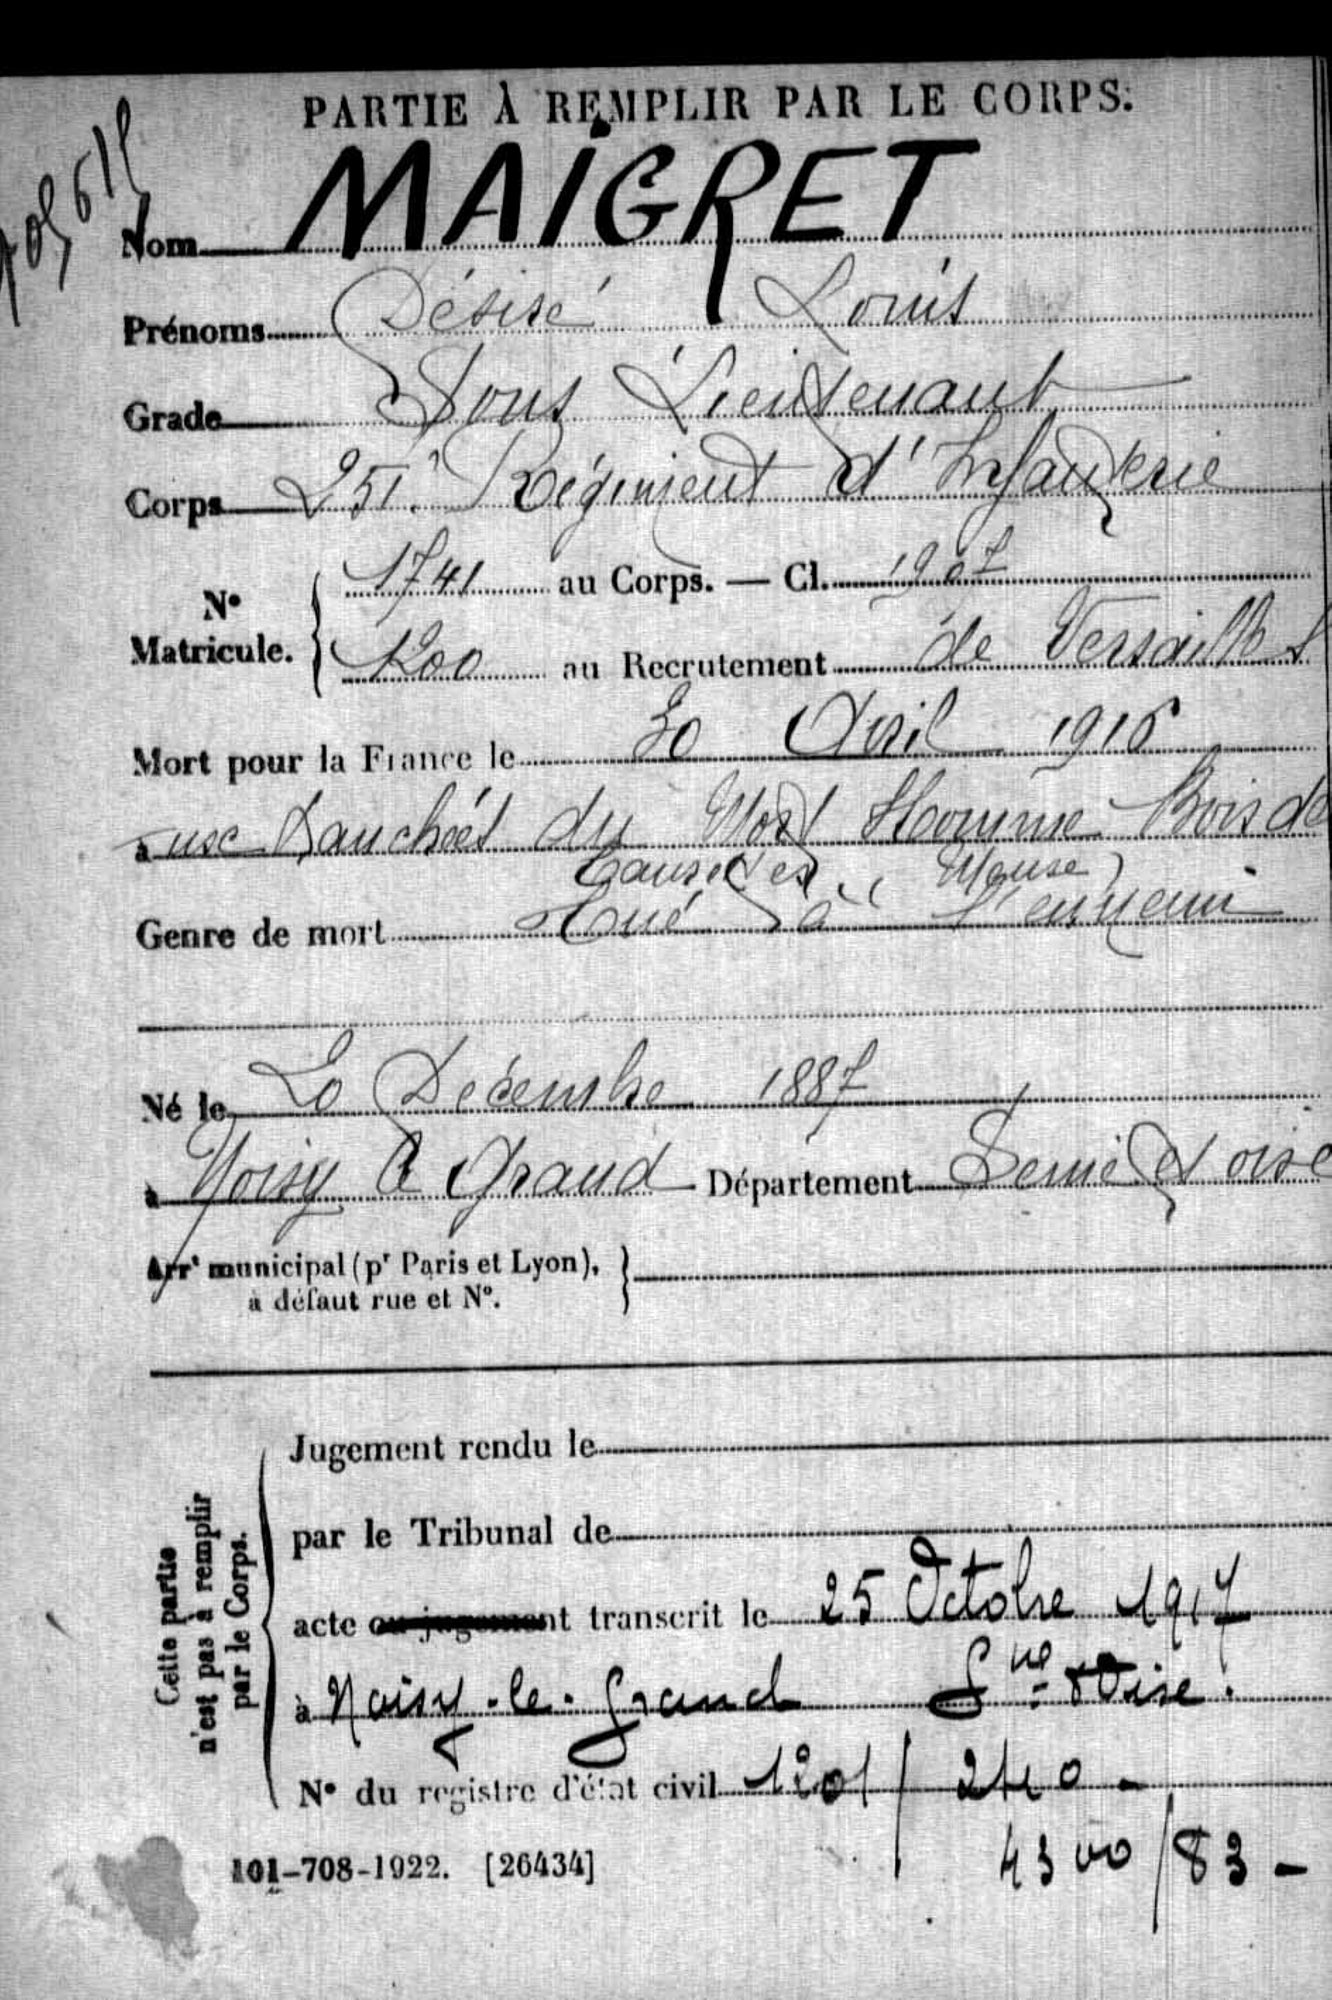 PARTIE À REMPLIR PAR LE CORPS.
Nom MAIGRET
Prénoms Désiré Louis
Grade Sous Lieutenant
Corps 251e Régiment d'Infanterie
N° Matricule. 1741 au Corps. — Cl. 1907
1200 au Recrutement de Versailles
Mort pour la France le 30 Avril 1916
à aux tranchées du Mort Homme Bois de
Caurettes (Meuse)
Genre de mort Tué à l'ennemi
Né le 20 Décembre 1887
à Noisy le Grand Département Seine et oise
Arrt municipal (pr Paris et Lyon),
à défaut rue et N°.
Cette partie n'est pas à remplir par le Corps.
Jugement rendu le
par le Tribunal de
acte ou jugement transcrit le 25 Octobre 1917
à Noisy-le-Grand Sne &Oise.
N° du registre d'état civil 1201/240-
4300/83-
101-708-1922. [26434]